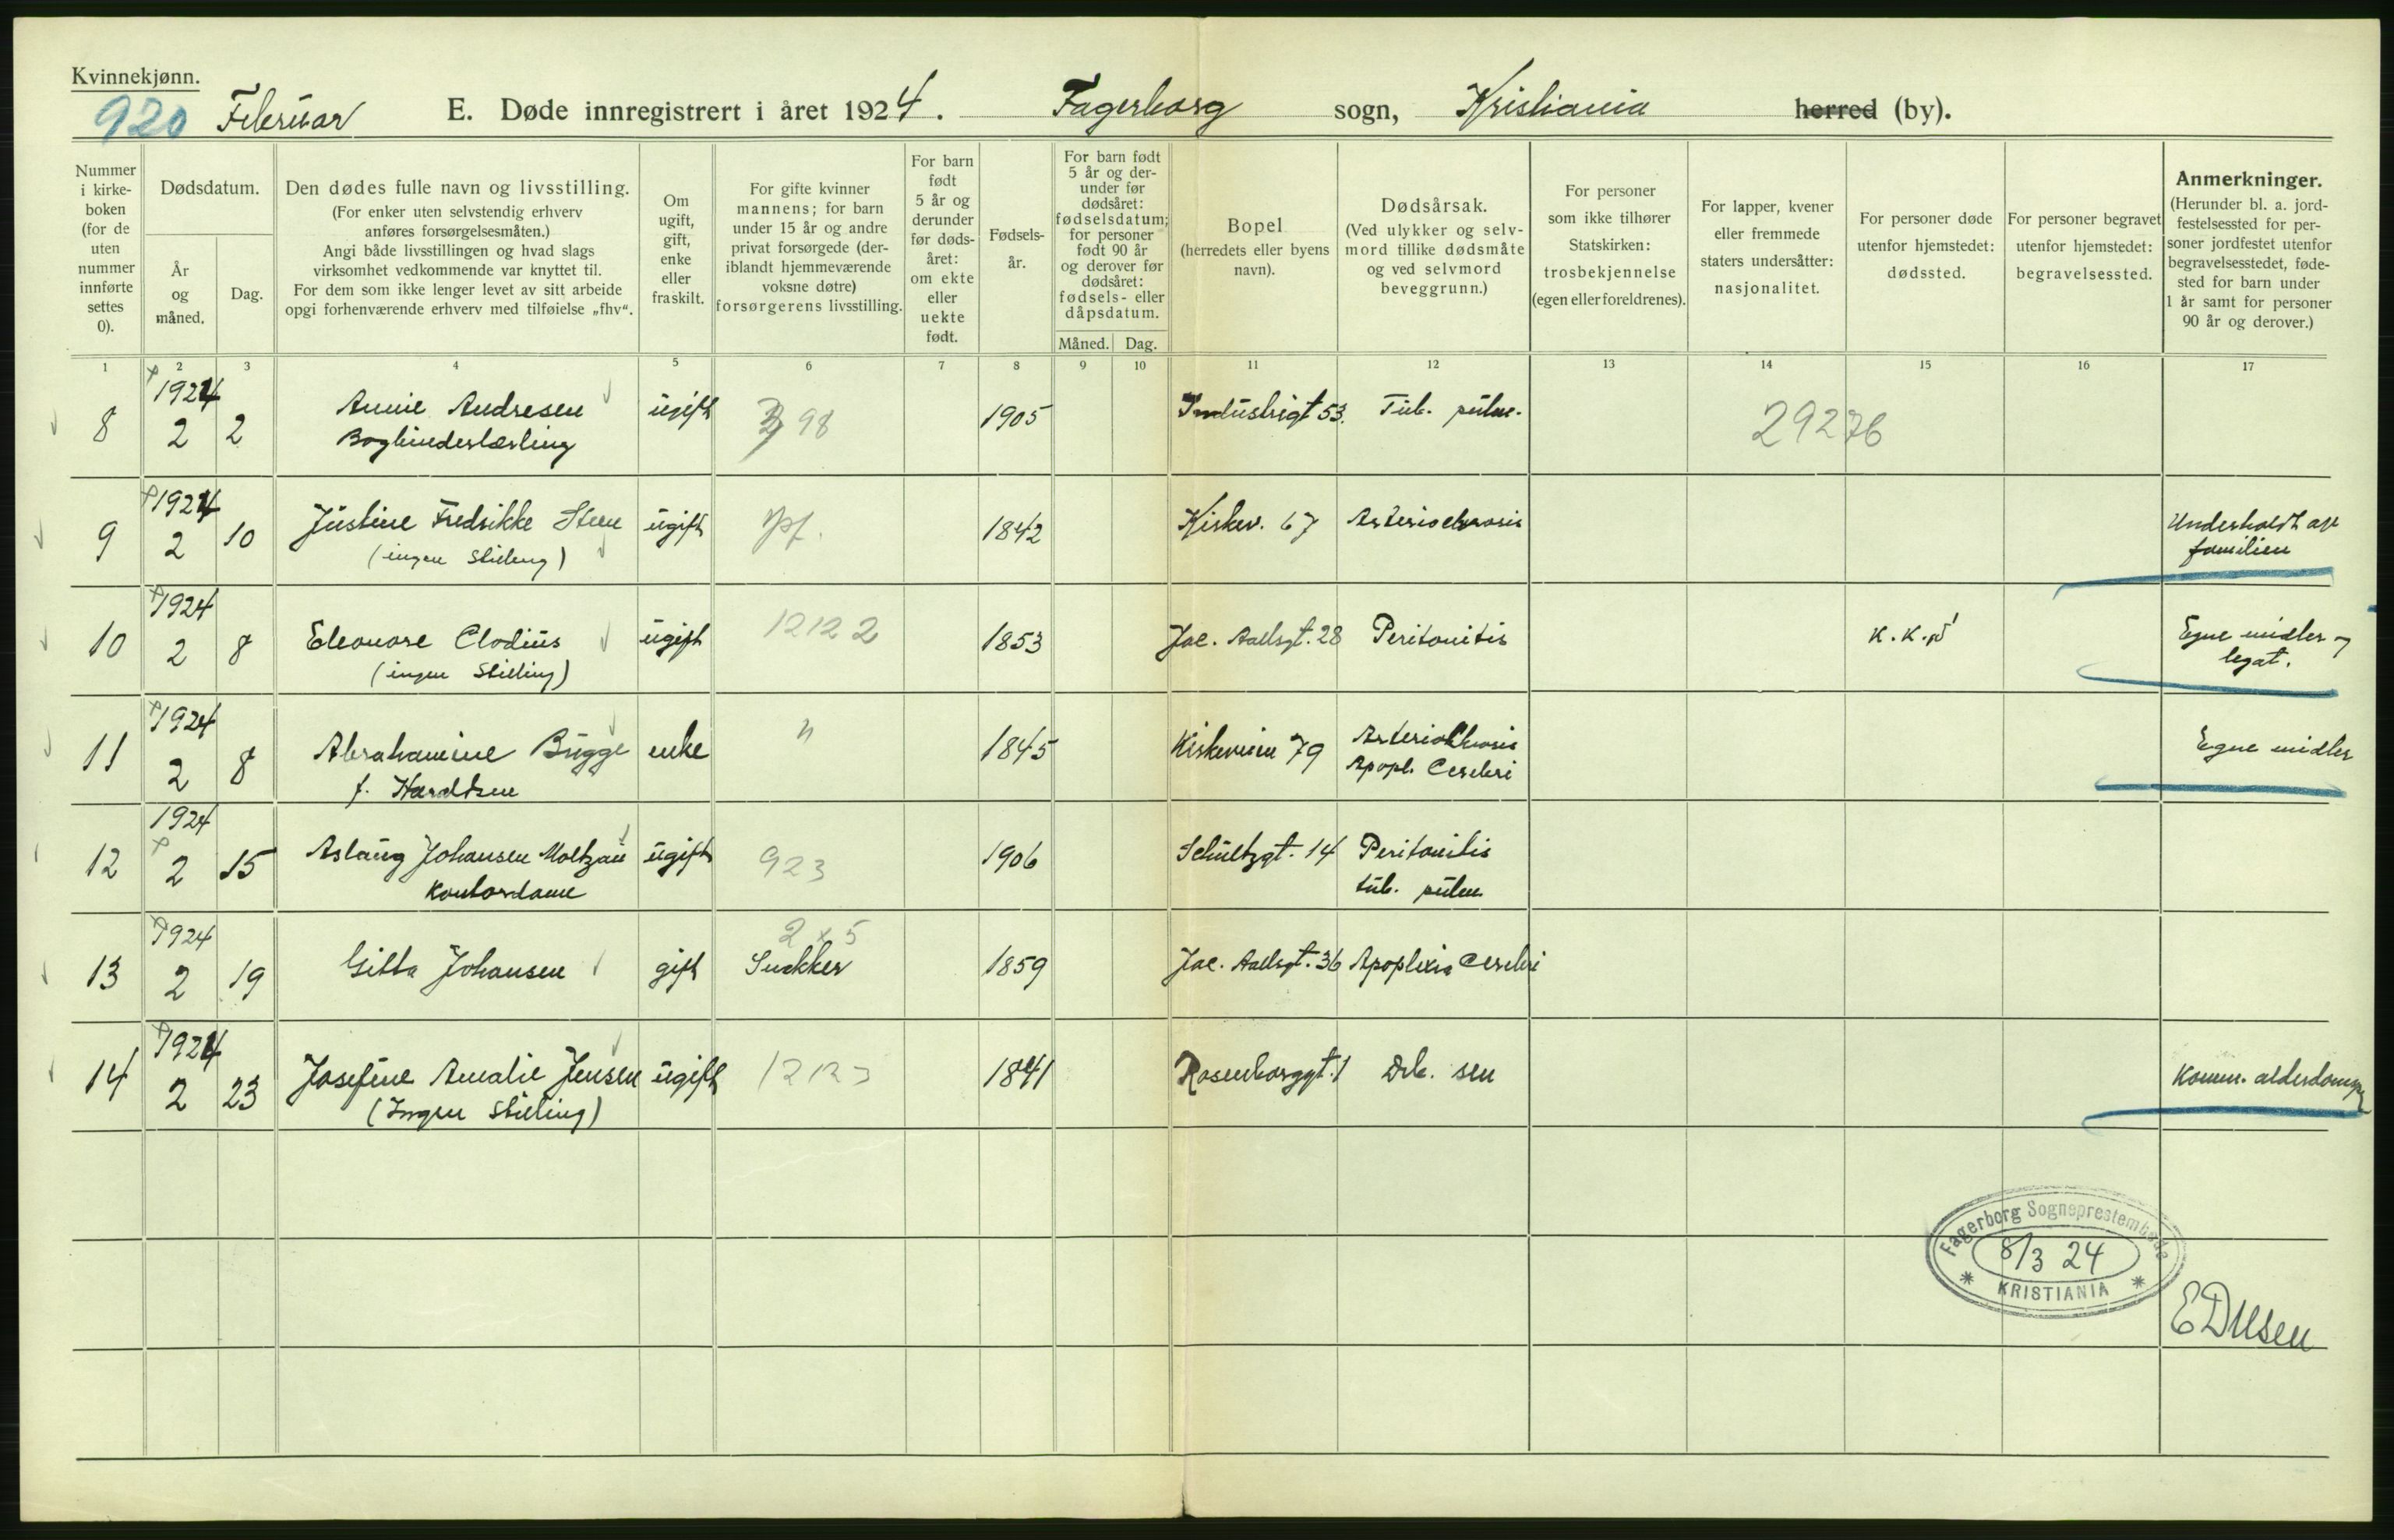 Kvinnekjønn.
920 Februar E. Døde innregistrert i året 1924. Fagerborg sogn, Kristiania herred (by).
Nummer i kirke-boken (for de uten nummer innførte settes 0).
Dødsdatum.
År og måned.
Dag.
Den dødes fulle navn og livsstilling.
(For enker uten selvstendig erhverv
anføres forsørgelsesmåten.)
Angi både livsstillingen og hvad slags
virksomhet vedkommende var knyttet til.
For dem som ikke lenger levet av sitt arbeide
opgi forhenværende erhverv med tilføielse „fhv“.
Om ugift, gift, enke eller fraskilt.
For gifte kvinner
mannens; for barn
under 15 år og andre
privat forsørgede (der-
iblandt hjemmeværende
voksne døtre)
forsørgerens livsstilling.
For barn
født
5 år og
derunder
før døds-
året:
om ekte
eller
uekte
født.
Fødsels-
år.
For barn født
5 år og der-
under før
dødsåret:
fødselsdatum;
for personer
født 90 år
og derover før
dødsåret:
fødsels- eller
dåpsdatum.
Måned. Dag.
Bopel
(herredets eller byens
navn).
Dødsårsak.
(Ved ulykker og selv-
mord tillike dødsmåte
og ved selvmord
beveggrunn.)
For personer
som ikke tilhører
Statskirken:
trosbekjennelse
(egen eller foreldrenes).
For lapper, kvener
eller fremmede
staters undersåtter:
nasjonalitet.
For personer døde
utenfor hjemstedet:
dødssted.
For personer begravet
utenfor hjemstedet:
begravelsessted.
Anmerkninger.
(Herunder bl. a. jord-
festelsessted for per-
soner jordfestet utenfor
begravelsesstedet, føde-
sted for barn under
1 år samt for personer
90 år og derover.)
1 2 3 4 5 6 7 8 9 10 11 12 13 14 15 16 17
8 1924 2 2 Annie Andresen ugift 98 1905 Industrigt 53. Tub. pulm. 29276
Bogbinderlærling
9 1924 2 10 Justine Fredrikke Steen ugift 1842 Kirkev. 67 Underholdt av
(ingen Stilling) familien
10 1924 2 8 Eleonore Clodius ugift 12122 1853 Jac. Aallsgt. 28 Peritonitis K. K. Egne midler
(ingen Stilling) legat.
11 1924 2 8 Abrahamine Bugge enke " 1845 Kirkeveien 79 Egne midler
f. Apopl. Cerebri
12 1924 2 15 Aslaug Johansen Moltzau ugift 923 1906 Schultzgt. 14 Peritonitis
Kontordame tub. pulm
2 x 5
13 1924 2 19 Gitta Johansen gift Snekker 1859 Jac. Aallsgt. 36 Apoplexia Cerebri
14 1924 2 23 Josefine Amalie Jensen ugift 1841 Rosenborggt. 1 Deb. sen Komm.
(Ingen Stilling)
Fagerborg Sogneprestembede
8/3 24
KRISTIANIA